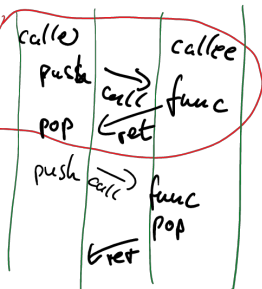 caller callee
push call func
pop ret
push call func
pop
ret